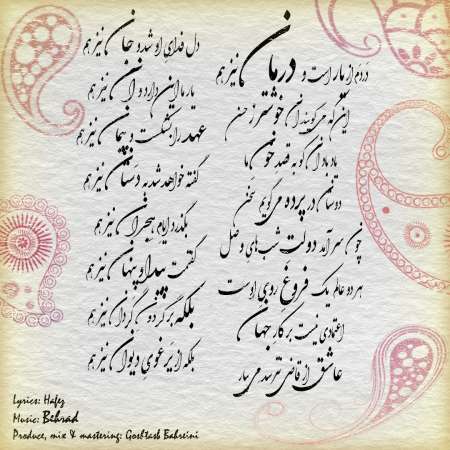 دردم از یار است و درمان نیز هم
دل فدای او شد و جان نیز هم
این که می‌گویند آن خوشتر ز حسن
یار ما این دارد و آن نیز هم
یاد باد آن کو به قصد خون ما
عهد را بشکست و پیمان نیز هم
دوستان در پرده می‌گویم سخن
گفته خواهد شد به دستان نیز هم
چون سر آمد دولت شب‌های وصل
بگذرد ایام هجران نیز هم
هر دو عالم یک فروغ روی اوست
گفتمت پیدا و پنهان نیز هم
اعتمادی نیست بر کار جهان
بلکه بر گردون گردان نیز هم
عاشق از قاضی نترسد می بیار
بلکه از یرغوی دیوان نیز هم
Lyrics: Hafez
Music: Behrad
Produce, mix & mastering: Goshtasb Bahreini